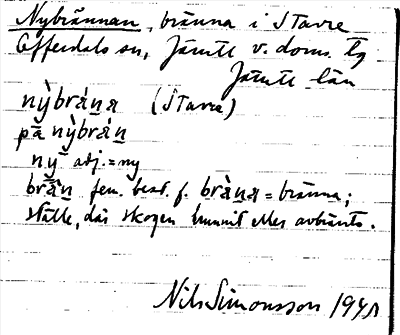 Nybrännan, bränna i Stavre
Offerdals sn, Jämtl v. doms. tg
Jämtl län
nỳbrána (Stavre)
på nỳbrán
nȳ adj. = ny
brǟn fem. best. f. brä̀na = bränna;
ställe, där skogen brunnit eller avbränts.
Nils Simonsson 1941